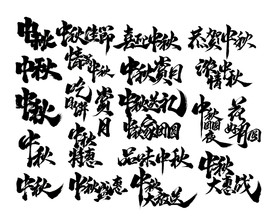 中秋
中秋
中秋
中秋
中秋
中秋佳节
情满中秋
吃月饼
赏月
中秋特惠
中秋盛惠
喜迎中秋
中秋赏月
中秋送礼
中秋家团圆
品味中秋
中秋大放送
恭贺中秋
浓情中秋
中秋团圆夜
花好月圆
中秋大惠战